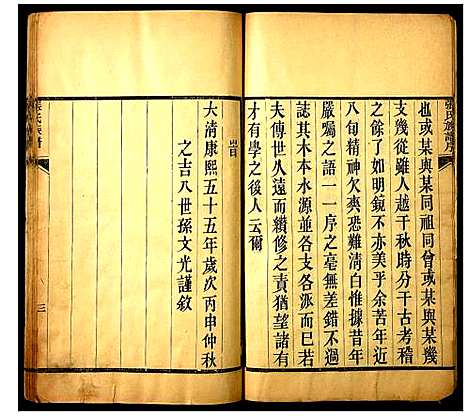 張氏族譜序
也或某與某同祖同曾或某與某幾
支幾從雖人越千秋時分千古稽
之餘了如明鏡不亦美乎余苦年近
八旬精神欠爽恐難清白惟據昔年
嚴囑之語一一序之毫無差錯不過
誌其木本水源並各支各派而已若
夫傳世人遠而纘修之責猶望諸有
才有學之後人云爾
時
大清康熙五十五年歲次丙申仲秋
之吉八世孫文光謹敘
張氏族譜
三